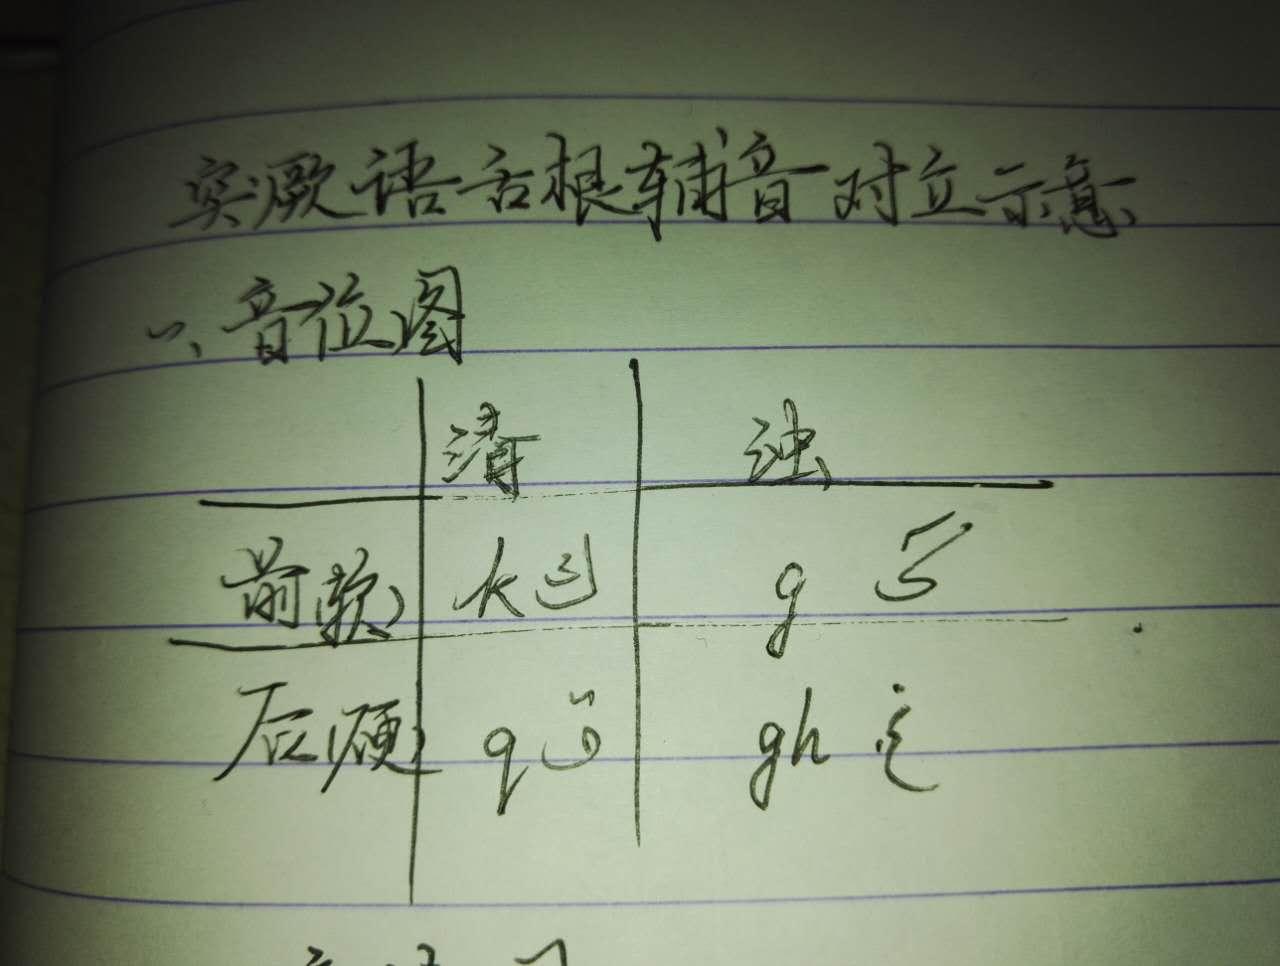 突厥语舌根辅音对立示意
一、音位图
清 浊
前(软) k ك g گ
后(硬) q ق gh غ